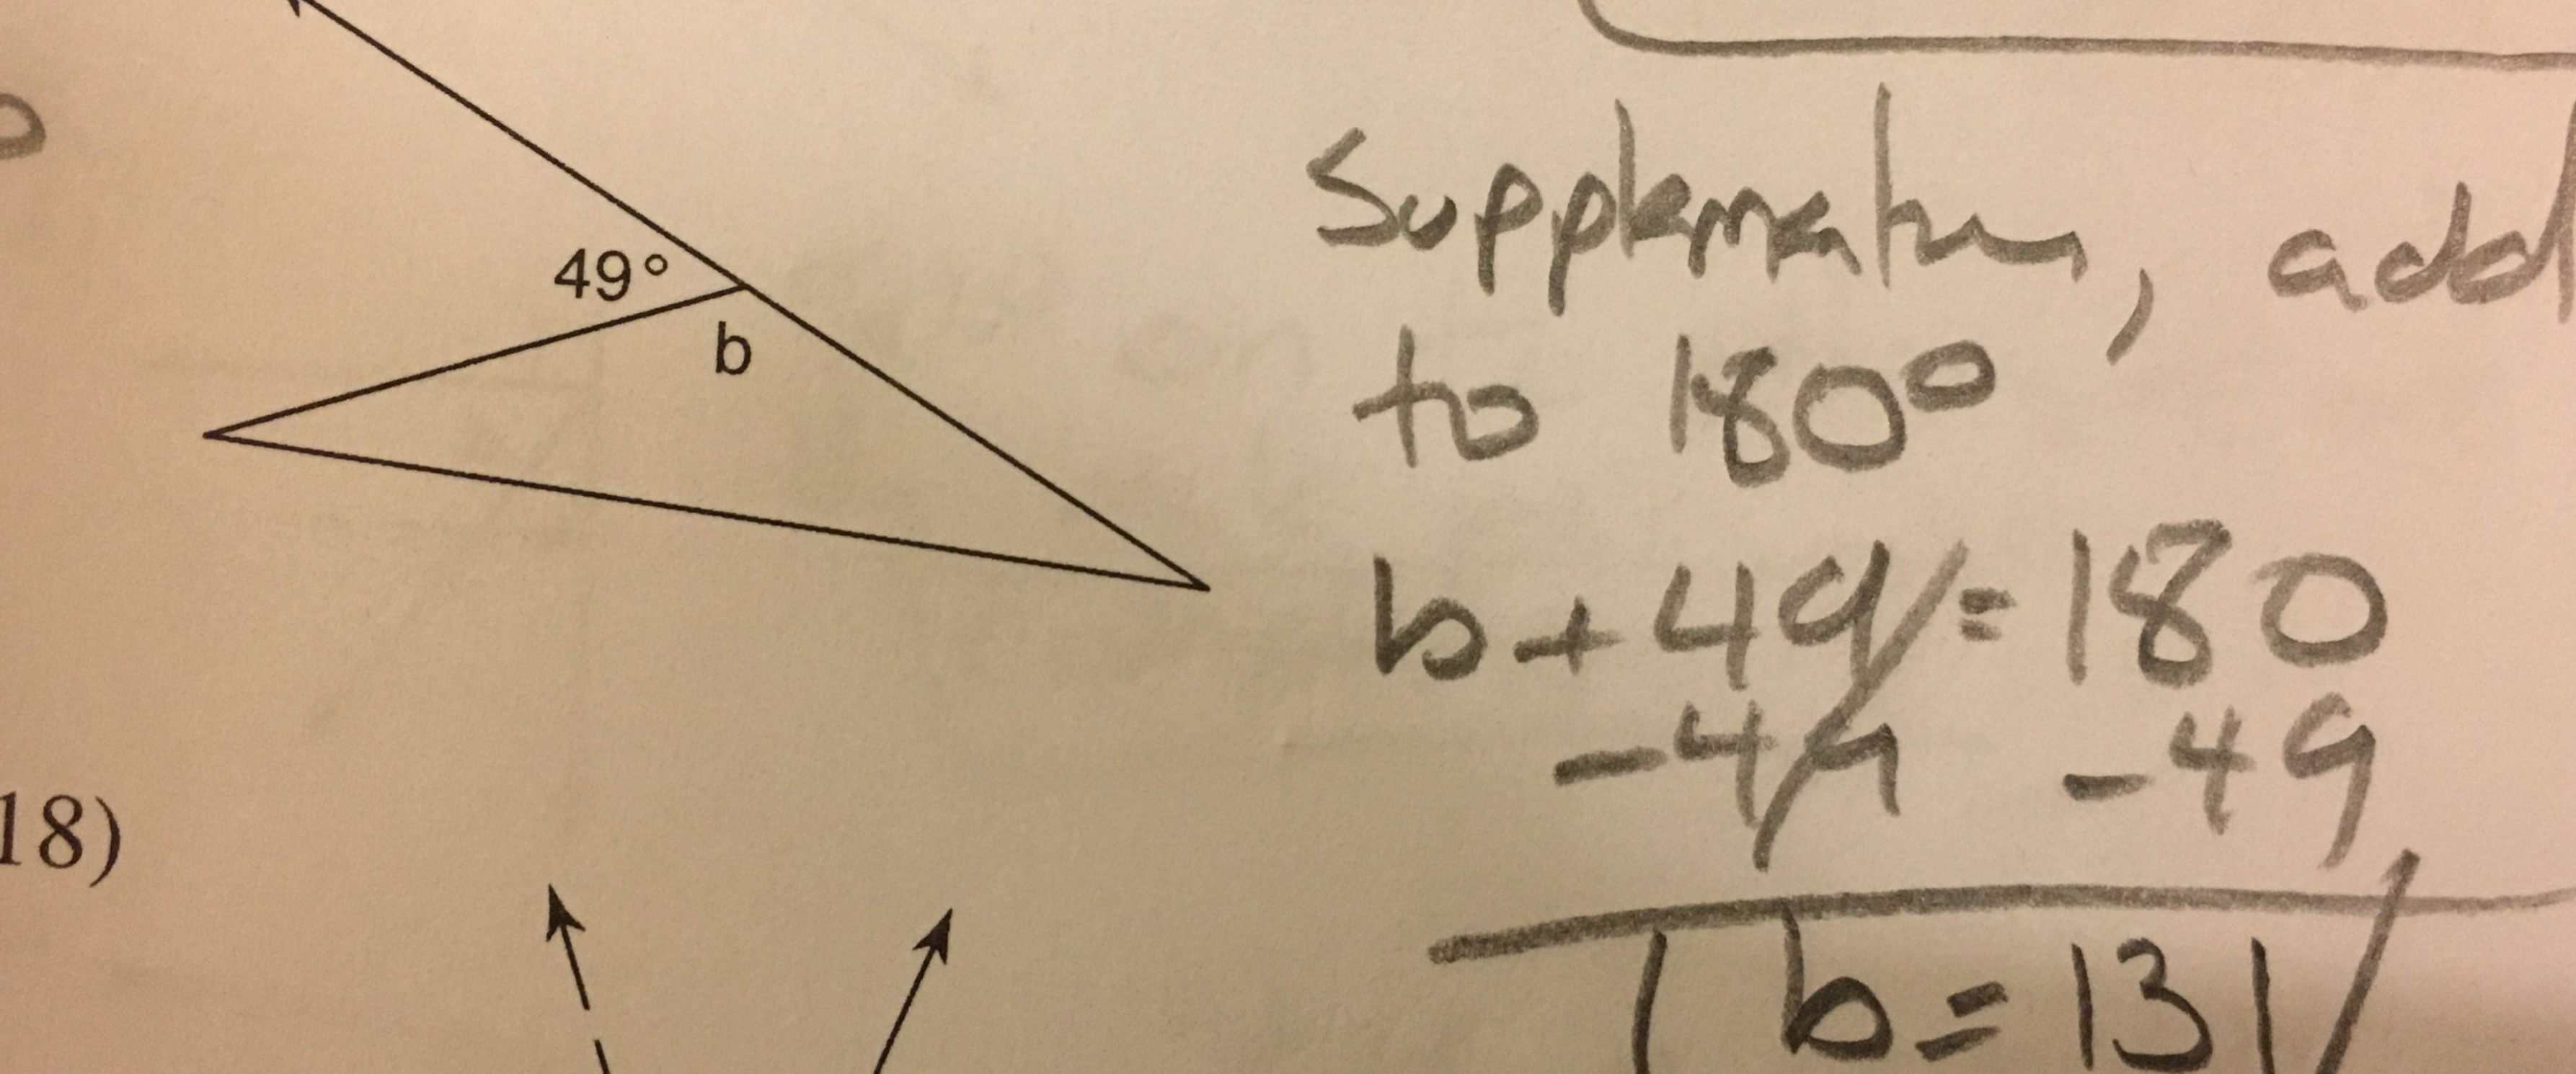 49°
b
18)
Supplementary, add
to 180°
b + 49 = 180
-49 -49
b = 131